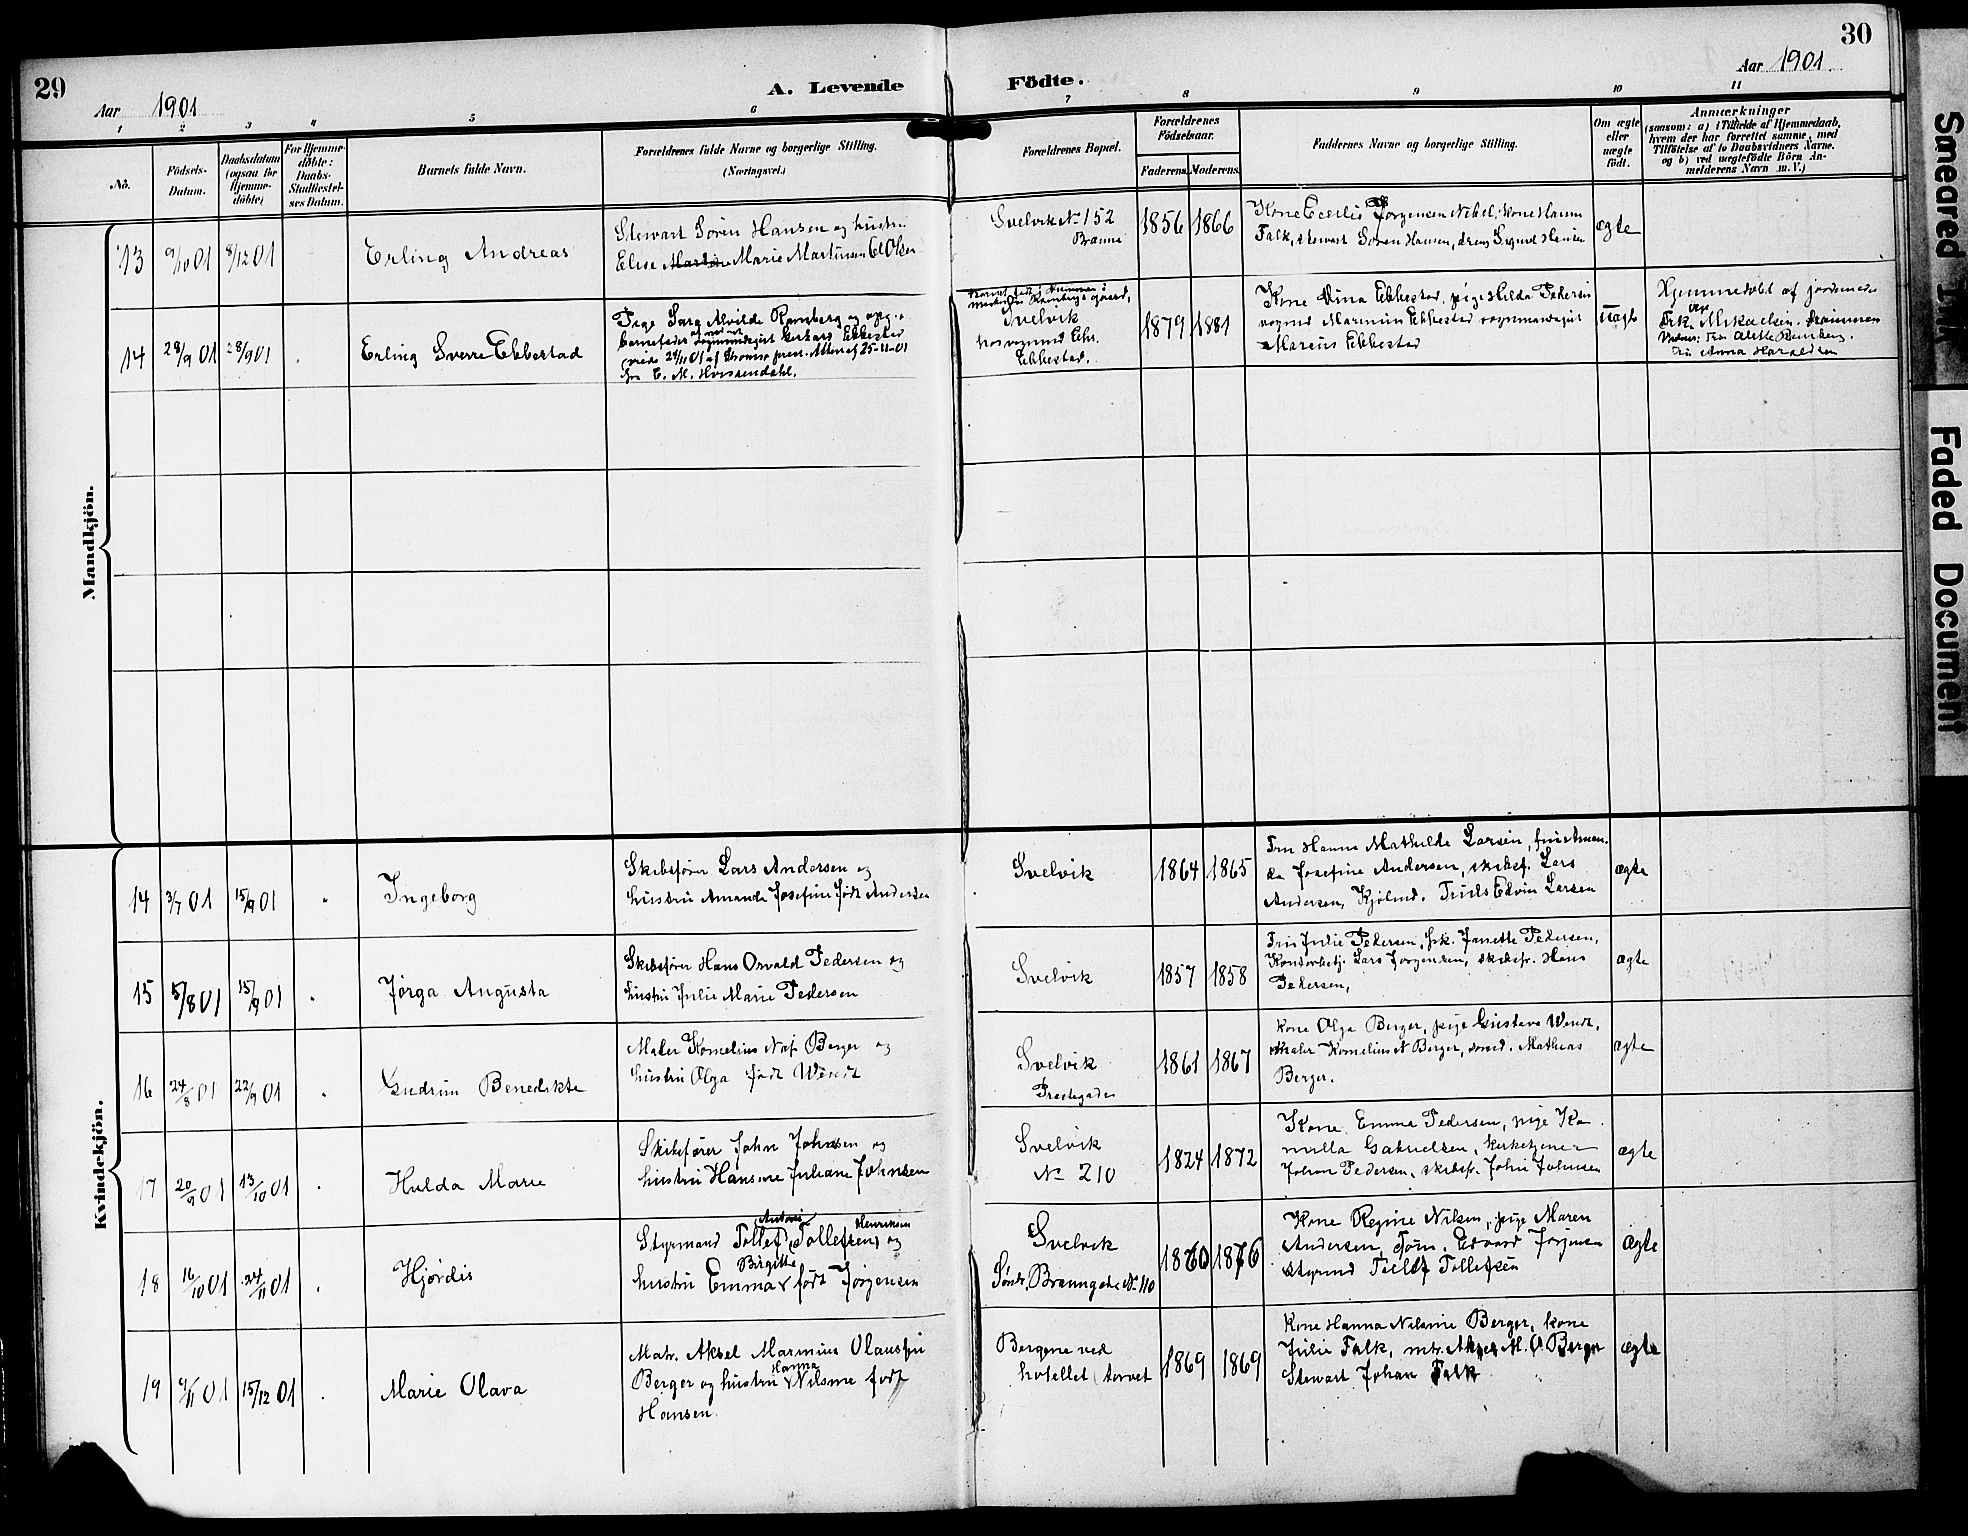 29
Aar 1901
A. Levende Födte.
30
Aar 1901
1 2 3 4 5 6 7 8 9 10 11
No.
Födsels-
Datum.
Daabsdatum
(ogsaa for
Hjemme-
döbte)
For Hjemme-
döbte:
Daabs-
Stadfæstel-
ses Datum.
Barnets fulde Navn.
Forældrenes fulde Navne og borgerlige Stilling.
(Næringsvei.)
Forældrenes Bopæl.
Forældrenes
Födselsaar.
Faderens. Moderens.
Faddernes Navne og borgerlige Stilling.
Om ægte
eller
uægte
födt.
Anmærkninger
(saasom: a) i Tilfælde af Hjemmedaab,
hvem der har forrettet samme, med
Tilföielse af to Daabsvidners Navne.
og b) ved uægtefödte Börn An-
melderens Navn m. V.)
Mandkjön.
13 9/10 01 8/12 01 Erling Andreas
Stewart Søren Hansen og hustru
Elise Marie Martinsen
Svelvik No 152
1856 1866
Falk, stewart Søren Hansen, dreng Sigurd Hansen
ægte
14 28/9 01 28/9 01 Erling Sverre Ebbestad
Pige Sara Alvilde Ramberg og opg.
barnefader Gerhard Ebbestad
E. M. Hvissendahl.
Svelvik
hos vognmd Chr.
Ebbestad.
1879 1881
Kone Dina Ebbestad, pige Hilda Pedersen
vognmd Marinius Ebbestad vognmandsgut
Marius Ebbestad
uægte
Hjemmedøbt af jordemoder
Frk. Mikaelsen. Drammen
Fru Anna Haraldsen
Kvindekjön.
14 3/7 01 15/9 01 " Ingeborg
Skibsfører Lars Andersen og
hustru Amanda Josefine født Andersen
Svelvik
1864 1865
Fru Hanna Mathilde Larsen, fru Aman-
da Josefine Andersen, skibsf. Lars
Andersen, Kjøbmd. Truls Edvin Larsen
ægte
15 5/8 01 15/9 01 " Jørga Augusta
Skibsfører Hans Osvald Pedersen og
hustru Julie Marie Pedersen
Svelvik
1857 1858
Fru Julie Pedersen, frk. Janette Pedersen,
Kontorbetj. Lars Jørgensen, skibsfr. Hans
Pedersen,
ægte
16 24/8 01 22/9 01 " Gudrun Benedikte
Maler Kornelius Berger og
hustru Olga født Wendt
Svelvik
1861 1867
Kone Olga Berger, pige Gustava Wendt,
Maler Kornelius N Berger, smed. Mathias
Berger.
ægte
17 20/9 01 13/10 01 " Hulda Marie
Skibsfører John Johnsen og
hustru Hansine Juliane Johnsen
Svelvik
No 210
1824 1872
Kone Emma Pedersen, pige Ka-
milla Gabrielsen, kirketjener
Johan Pedersen, skibsfr. John Johnsen
ægte
18 16/10 01 24/11 01 " Hjørdis
Antoni Henriksen
Styrmand Tollef (Tollefsen) og
Birgitte
hustru Emma født Jørgensen
Svelvik
Søndr. Branngade No 110
1870 1876
Kone Regine Nilsen, pige Maren
Andersen, Tøm. Edvard Jørgensen
styrmd Tollef Tollefsen
ægte
19 9/11 01 15/12 01 " Marie Olava
Matr. Aksel Marinius Olaussen
Hanna
Berger og hustru Nilsine født
Hansen.
Bergene ved
hotellet (torvet
1869 1869
Kone Hanna Nilsine Berger, kone
Julie Falk, mtr. Aksel M. O. Berger
Stewart Johan Falk
ægte
Smeared Ink
Faded Document